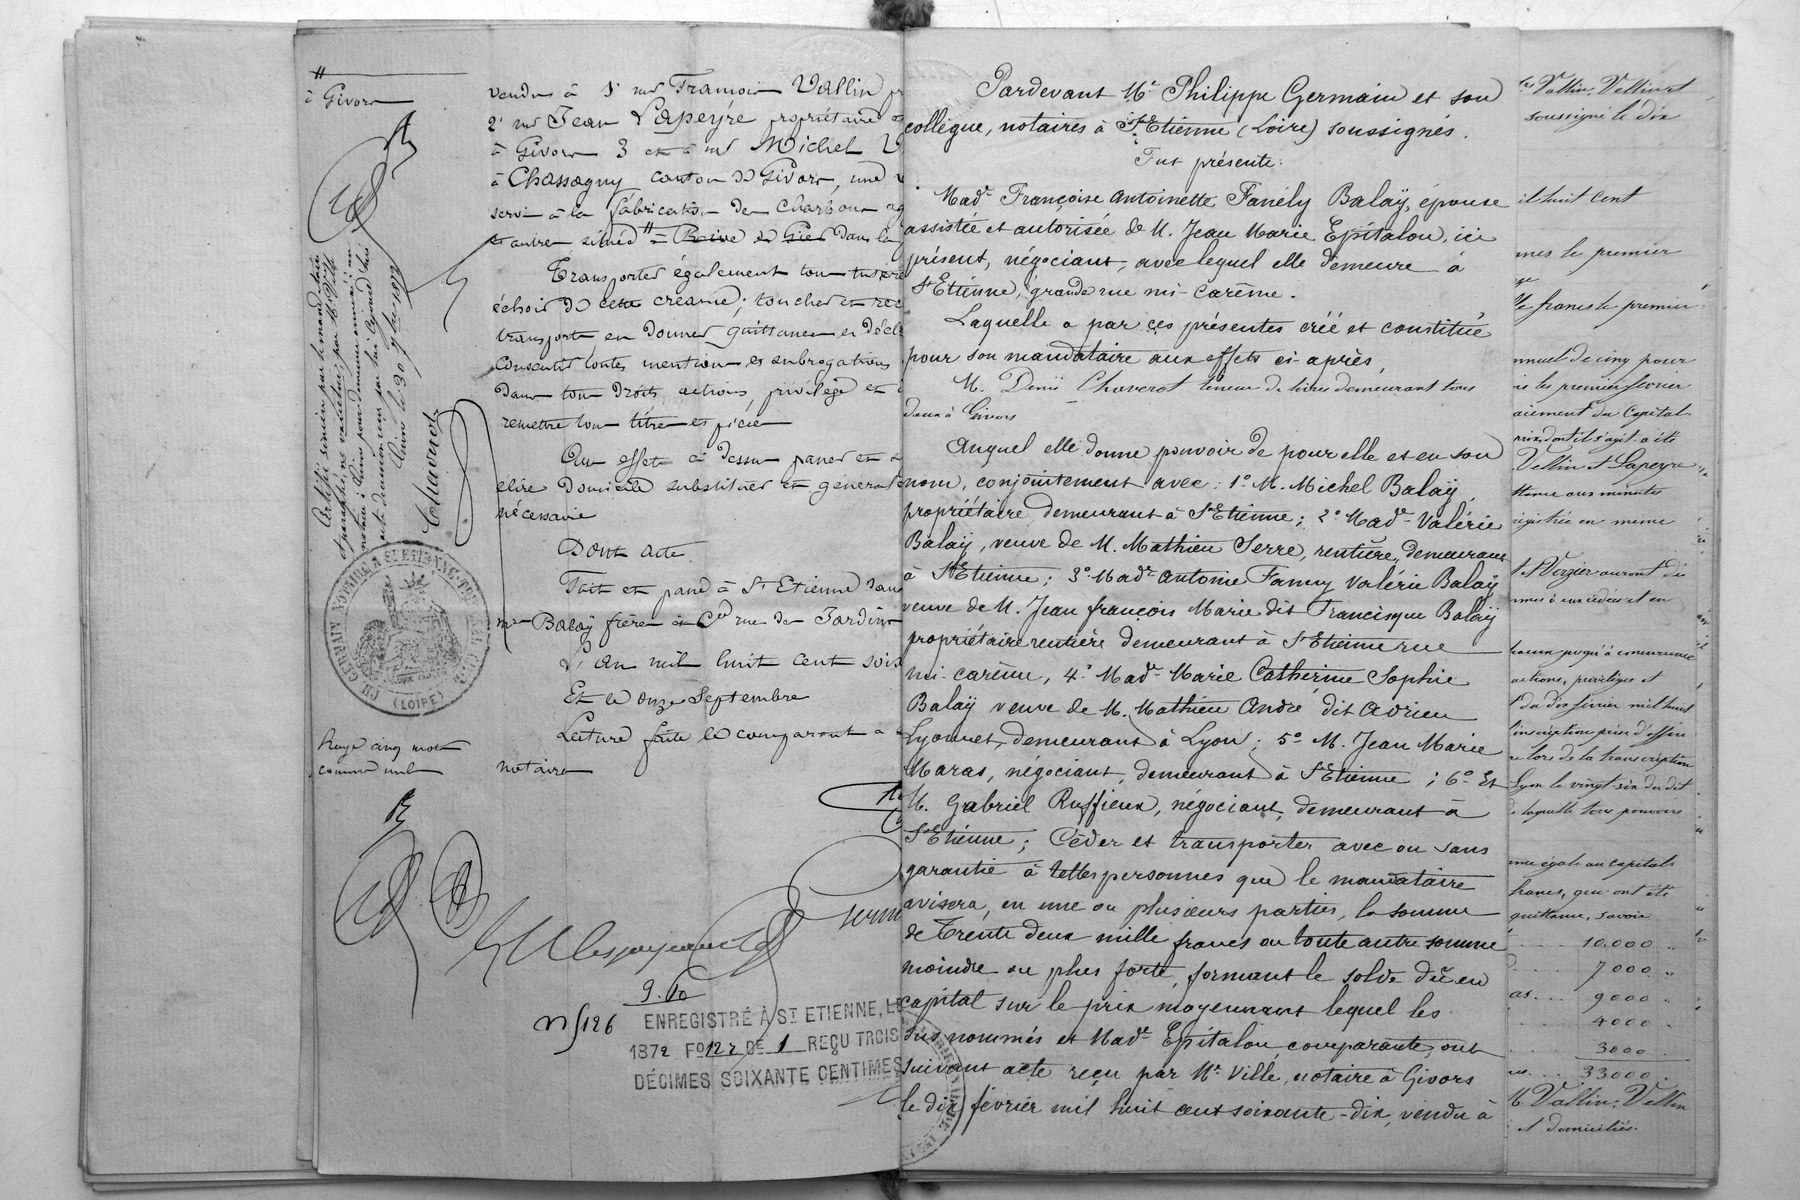 à Givors
vendus à 1° mr François Vallin
2° mr Jean Lapeyre propriétaire
à Givors 3 et à mr Michel
à Chassagny canton de Givors, une
servi à la fabrication de Charbons
et autres située à Rive de Gier dans la
Transporter également tous
échoir de cette créance; toucher et
transports en donner quittances
Consentir toutes mentions et subrogations
Dans tous Droits, actions, privilège et
remettre tous titres et pièces
Aux effets ci dessus passer et
élire Domicile substituer et
nécessaire
Dont acte
Fait et passé à St Etienne
Balaÿ frères et Cie rue des Jardins
L'an mil huit cent
Et le onze Septembre
Lecture faite le comparant
notaires
Certifié sincère par le mandataire
Givors le 30 7bre 1872
Chaverot
GERMAIN NOTAIRE A ST ETIENNE
(LOIRE)
Rayé cinq mots
comme nuls
9.60
N 5126
ENREGISTRÉ À ST ETIENNE, LE
1872 Fo 122 CE 1 REÇU TROIS
DÉCIMES SOIXANTE CENTIMES
Pardevant Me Philippe Germain et son
collègue, notaires à St Etienne (Loire) soussignés.
Fut présente:
Made Françoise Antoinette Fanély Balaÿ, épouse
assistée et autorisée de M. Jean Marie Epitalon, ici
présent, négociant, avec lequel elle demeure à
St Etienne, grande rue mi-carême.
Laquelle a par ces présentes créé et constitué
pour son mandataire aux effets ci après,
M. Denis Chaverot teneur de livres demeurant
à Givors
Auquel elle donne pouvoir de pour elle et en son
nom, conjointement avec: 1° M. Michel Balaÿ,
propriétaire, demeurant à St Etienne; 2° Made Valérie
Balaÿ, veuve de M. Mathieu Serre, rentière, demeurant
à St Etienne; 3° Made Antonie Fanny Valérie Balaÿ
veuve de M. Jean françois Marie dit Francisque Balaÿ
propriétaire rentière demeurant à St Etienne rue
mi-carême, 4° Made Marie Catherine Sophie
Balaÿ veuve de M. Mathieu André dit Adrien
Lyonnet, demeurant à Lyon; 5° M. Jean Marie
Maras, négociant, demeurant à St Etienne; 6° Et
M. Gabriel Ruffieux, négociant, demeurant à
St Etienne; Céder et transporter avec ou sans
garantie à telles personnes que le mandataire
avisera, en une ou plusieurs parties, la somme
de Trente deux mille francs ou toute autre somme
moindre ou plus forte, formant le solde dû en
capital sur le prix moyennant lequel les
sus nommés et Made Epitalon, comparante, ont
suivant acte reçu par Me Ville, notaire à Givors
le dix février mil huit cent soixante-dix, vendu à
Vallin, Vellin et
soussigné le dix
mil huit cent
mes le premier
francs le premier
annuel de cinq pour
les premier février
paiement du Capital
prix dont il s'agit a été
Vellin et Lapeyre
enregistrée en même
actions, privilèges et
du dix février mil huit
l'inscription prise d'office
lors de la transcription
Lyon le vingt-six du dit
laquelle tous pouvoirs
égale au capital
francs, qui ont été
quittance, savoir
10.000
7000
9000
4000
3000
33000
M. Vallin, Vellin
et domiciliés.